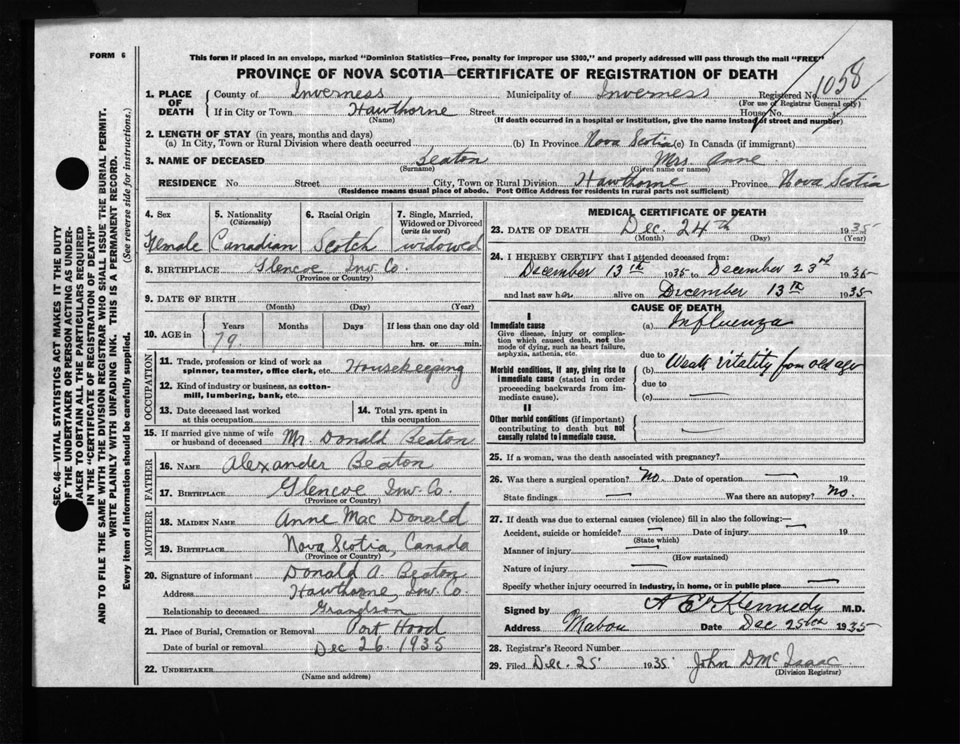 FORM 6
This form if placed in an envelope, marked "Dominion Statistics—Free, penalty for improper use $300," and properly addressed will pass through the mail "FREE"
PROVINCE OF NOVA SCOTIA—CERTIFICATE OF REGISTRATION OF DEATH
1. PLACE OF DEATH County of Inverness Municipality of Inverness Registered No. 1058
(For use of Registrar General only)
If in City or Town Hawthorne Street House No.
(Name) (If death occurred in a hospital or institution, give the name instead of street and number)
2. LENGTH OF STAY (in years, months and days)
(a) In City, Town or Rural Division where death occurred (b) In Province Nova Scotia (c) In Canada (if immigrant)
3. NAME OF DECEASED Beaton Mrs. Anne
(Surname) (Given name or names)
RESIDENCE No Street City, Town or Rural Division Hawthorne Province Nova Scotia
(Residence means usual place of abode. Post Office Address for residents in rural parts not sufficient)
4. Sex Female
5. Nationality (Citizenship) Canadian
6. Racial Origin Scotch
7. Single, Married, Widowed or Divorced (write the word) widowed
8. BIRTHPLACE Glencoe Inv. Co.
(Province or Country)
9. DATE OF BIRTH
(Month) (Day) (Year)
10. AGE in Years 79 Months Days If less than one day old
hrs. or min.
OCCUPATION
11. Trade, profession or kind of work as spinner, teamster, office clerk, etc. Housekeeping
12. Kind of industry or business, as cotton-mill, lumbering, bank, etc.
13. Date deceased last worked at this occupation
14. Total yrs. spent in this occupation
15. If married give name of wife or husband of deceased Mr. Donald Beaton
FATHER
16. NAME Alexander Beaton
17. BIRTHPLACE Glencoe Inv. Co.
(Province or Country)
MOTHER
18. MAIDEN NAME Anne Mac Donald
19. BIRTHPLACE Nova Scotia, Canada
(Province or Country)
20. Signature of informant Donald A. Beaton
Address Hawthorne, Inv. Co.
Relationship to deceased Grandson
21. Place of Burial, Cremation or Removal Port Hood
Date of burial or removal Dec 26. 1935
22. UNDERTAKER
(Name and address)
MEDICAL CERTIFICATE OF DEATH
23. DATE OF DEATH Dec. 24th 1935
(Month) (Day) (Year)
24. I HEREBY CERTIFY that I attended deceased from:
December 13th 1935 to December 23rd 1935
and last saw her alive on December 13th 1935
CAUSE OF DEATH
I
Immediate cause
Give disease, injury or complication which caused death, not the mode of dying, such as heart failure, asphyxia, asthenia, etc.
(a) Influenza
due to
Morbid conditions, if any, giving rise to immediate cause (stated in order proceeding backwards from immediate cause).
(b) Weak vitality from old age
due to
(c)
II
Other morbid conditions (if important) contributing to death but not causally related to immediate cause.
25. If a woman, was the death associated with pregnancy?
26. Was there a surgical operation? No. Date of operation 19
State findings Was there an autopsy? No.
27. If death was due to external causes (violence) fill in also the following:—
Accident, suicide or homicide? Date of injury 19
(State which)
Manner of injury
(How sustained)
Nature of injury
Specify whether injury occurred in industry, in home, or in public place
Signed by Kennedy M.D.
Address Mabou Date Dec 25th 1935
28. Registrar's Record Number
29. Filed Dec. 25 1935 John D Mc Isaac
(Division Registrar)
SEC. 46—VITAL STATISTICS ACT MAKES IT THE DUTY
OF THE UNDERTAKER OR PERSON ACTING AS UNDER-
TAKER TO OBTAIN ALL THE PARTICULARS REQUIRED
IN THE "CERTIFICATE OF REGISTRATION OF DEATH"
AND TO FILE THE SAME WITH THE DIVISION REGISTRAR WHO SHALL ISSUE THE BURIAL PERMIT.
WRITE PLAINLY WITH UNFADING INK. THIS IS A PERMANENT RECORD.
Every item of information should be carefully supplied. (See reverse side for instructions.)